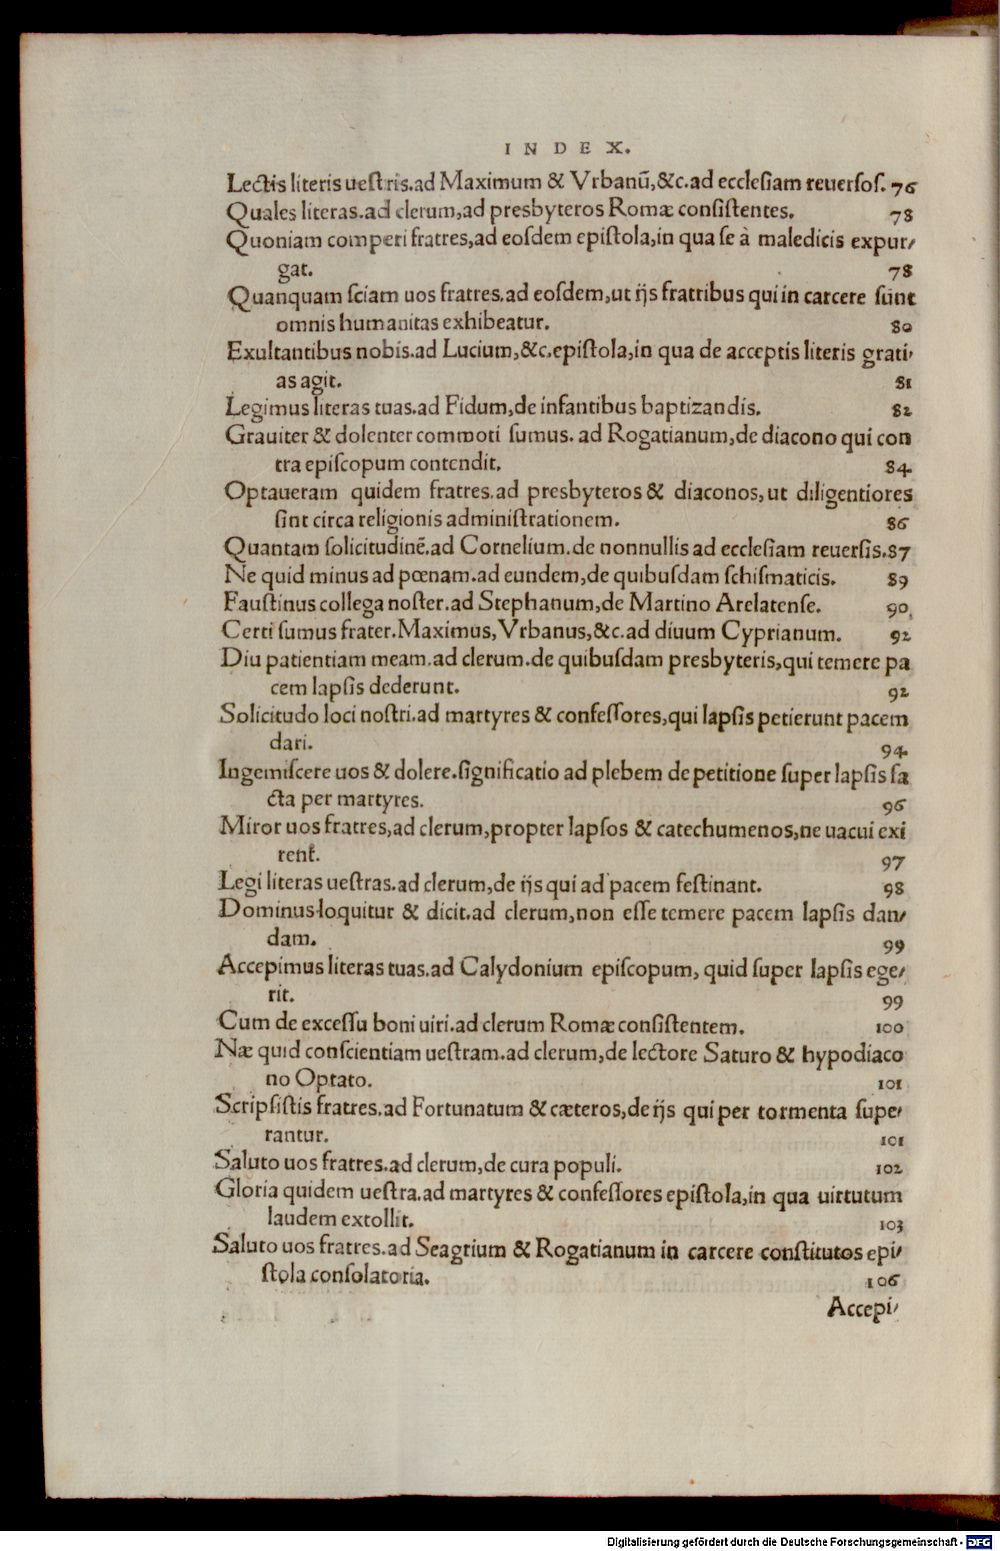 INDEX.
Lectis literis ueſtris.ad Maximum & Vrbanū,&c.ad eccleſiam reuerſoſ. 76
Quales literas.ad clerum,ad presbyteros Romæ conſiſtentes. 78
Quoniam comperi fratres,ad eoſdem epiſtola,in qua ſe à maledicis expur/
gat. 78
Quanquam ſciam uos fratres.ad eoſdem,ut ijs fratribus qui in carcere ſunt
omnis humanitas exhibeatur. 80
Exultantibus nobis.ad Lucium,&c.epiſtola,in qua de acceptis literis grati/
as agit. 81
Legimus literas tuas.ad Fidum,de infantibus baptizandis. 82
Grauiter & dolenter commoti ſumus. ad Rogatianum,de diacono qui con
tra epiſcopum contendit. 84
Optaueram quidem fratres.ad presbyteros & diaconos,ut diligentiores
ſint circa religionis adminiſtrationem. 86
Quantam ſolicitudinē.ad Cornelium.de nonnullis ad eccleſiam reuerſis.87
Ne quid minus ad pœnam.ad eundem,de quibuſdam ſchiſmaticis. 89
Fauſtinus collega noſter.ad Stephanum,de Martino Arelatenſe. 90
Certi ſumus frater.Maximus,Vrbanus,&c.ad diuum Cyprianum. 92
Diu patientiam meam.ad clerum.de quibuſdam presbyteris,qui temere pa
cem lapſis dederunt. 92
Solicitudo loci noſtri.ad martyres & confeſſores,qui lapſis petierunt pacem
dari. 94
Ingemiſcere uos & dolere.ſignificatio ad plebem de petitione ſuper lapſis fa
cta per martyres. 96
Miror uos fratres,ad clerum,propter lapſos & catechumenos,ne uacui exi
rent. 97
Legi literas ueſtras.ad clerum,de ijs qui ad pacem feſtinant. 98
Dominus loquitur & dicit.ad clerum,non eſſe temere pacem lapſis dan/
dam. 99
Accepimus literas tuas.ad Calydonium epiſcopum, quid ſuper lapſis ege/
rit. 99
Cum de exceſſu boni uiri.ad clerum Romæ conſiſtentem. 100
Næ quid conſcientiam ueſtram.ad clerum,de lectore Saturo & hypodiaco
no Optato. 101
Scripſiſtis fratres.ad Fortunatum & cæteros,de ijs qui per tormenta ſupe/
rantur. 101
Saluto uos fratres.ad clerum,de cura populi. 102
Gloria quidem ueſtra.ad martyres & confeſſores epiſtola,in qua uirtutum
laudem extollit. 103
Saluto uos fratres.ad Seagrium & Rogatianum in carcere conſtitutos epi/
ſtola conſolatoria. 106
Accepi/
Digitalisierung gefördert durch die Deutsche Forschungsgemeinschaft - DFG